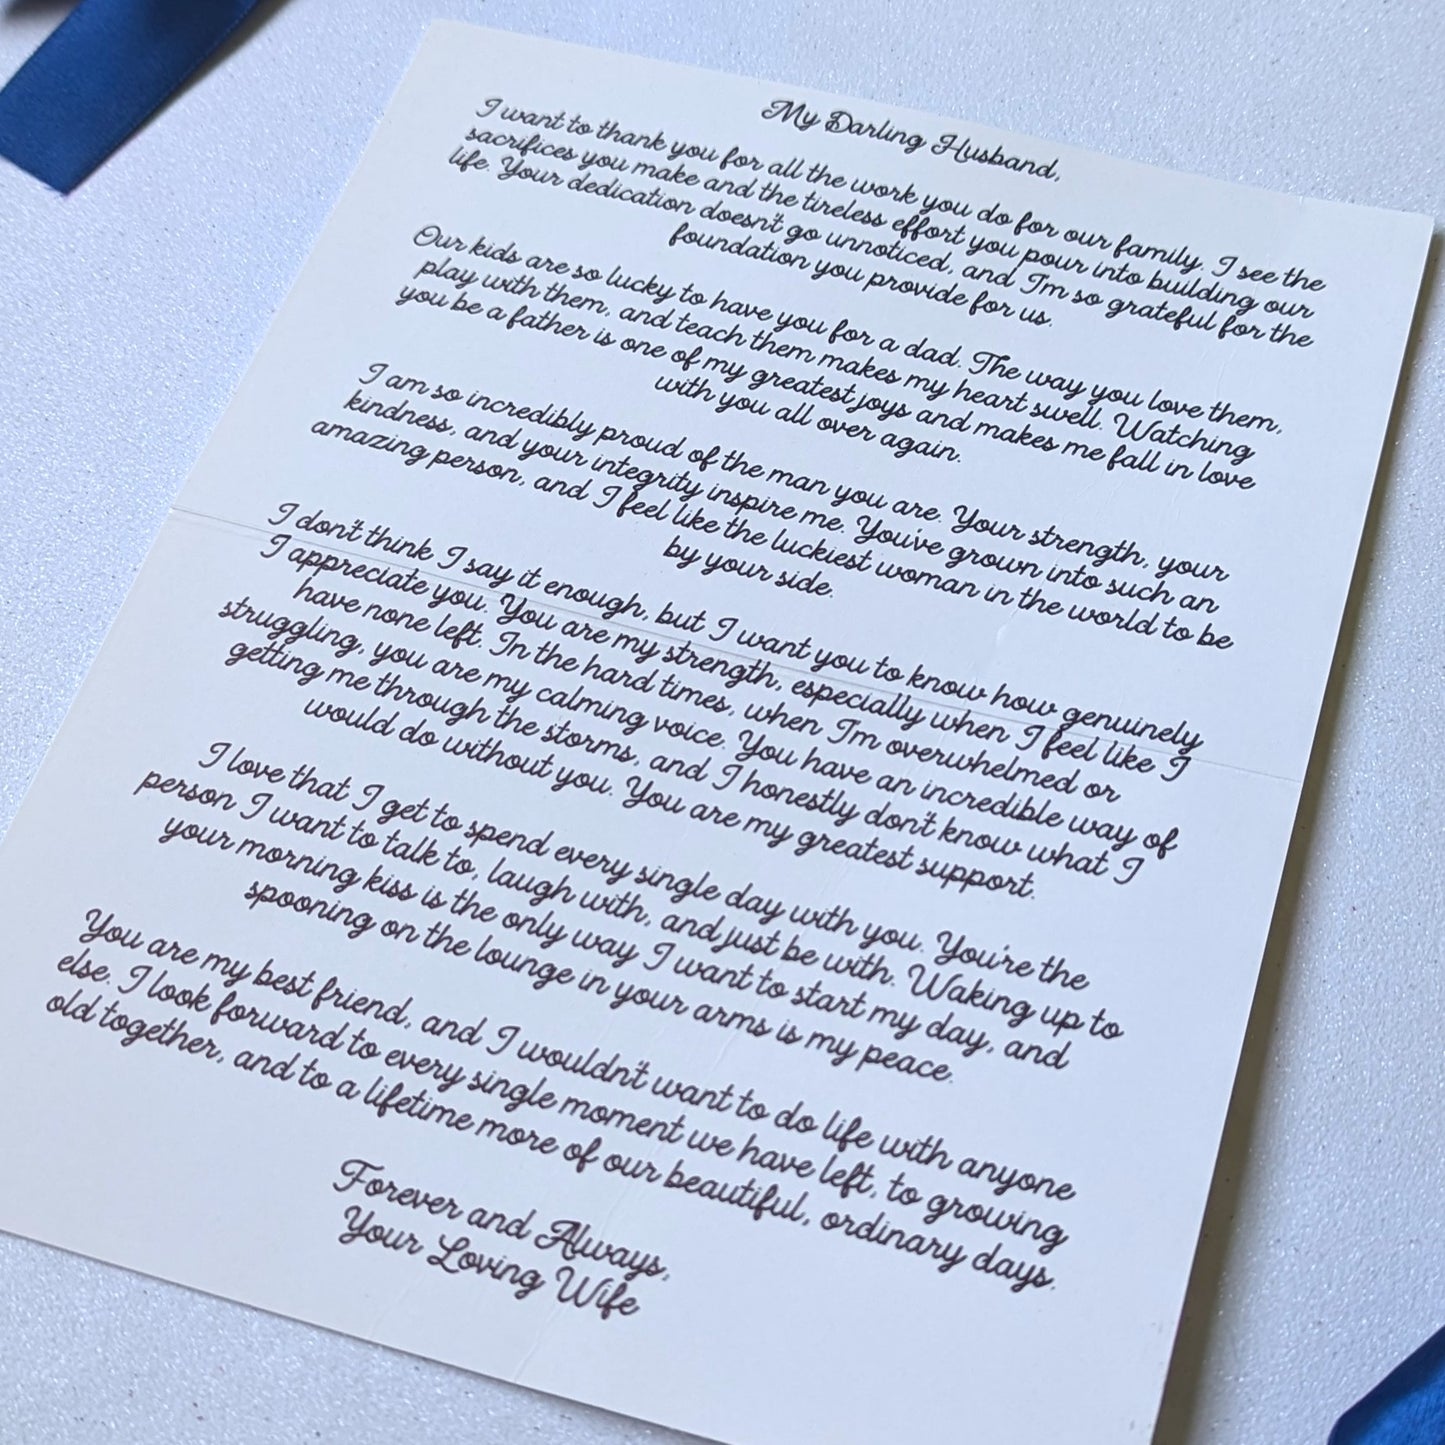 My Darling Husband,
I want to thank you for all the work you do for our family. I see the
sacrifices you make and the tireless effort you pour into building our
life. Your dedication doesn't go unnoticed, and I'm so grateful for the
foundation you provide for us.
Our kids are so lucky to have you for a dad. The way you love them,
play with them, and teach them makes my heart swell. Watching
you be a father is one of my greatest joys and makes me fall in love
with you all over again.
I am so incredibly proud of the man you are. Your strength, your
kindness, and your integrity inspire me. You've grown into such an
amazing person, and I feel like the luckiest woman in the world to be
by your side.
I don't think I say it enough, but I want you to know how genuinely
I appreciate you. You are my strength, especially when I feel like I
have none left. In the hard times, when I'm overwhelmed or
struggling, you are my calming voice. You have an incredible way of
getting me through the storms, and I honestly don't know what I
would do without you. You are my greatest support.
I love that I get to spend every single day with you. You're the
person I want to talk to, laugh with, and just be with. Waking up to
your morning kiss is the only way I want to start my day, and
spooning on the lounge in your arms is my peace.
You are my best friend, and I wouldn't want to do life with anyone
else. I look forward to every single moment we have left, to growing
old together, and to a lifetime more of our beautiful, ordinary days.
Forever and Always,
Your Loving Wife